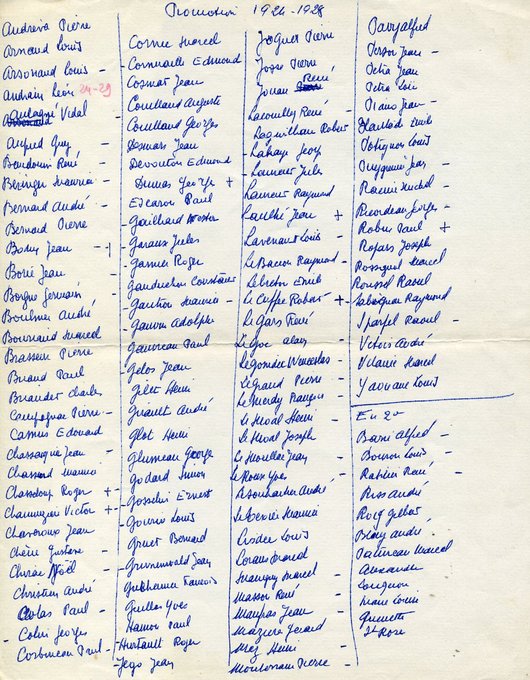 Promotion 1924-1928
Andreva Pierre
Arnaud Louis
Arsonaud Louis -
Audrain Léon 24-29
Aulagné Vidal
Auffred Guy -
Baudouin René -
Beringer Maurice -
Bernard André -
Bernard Pierre
Bosny Jean -+
Borie Jean
Borgne Germain
Boulmer André
Boursaud Marcel
Brasseur Pierre
Briand Paul
Briandet Charles
Campagnac Pierre -
Camus Edouard
Chassagne Jean -
Chassard Maurice
Chasseloup Roger +
Chaumezière Victor +
Chaveroux Jean
Chéru Gustave
Chirac Noël -
Christien André
Colas Paul -
- Colin Georges
Corbineau Paul -
Cornec Marcel
Cornuaille Edmond
Cosmat Jean
- Couilland Auguste
Couilland Georges
Desmars Jean
Devoulton Edmond
Dumas George +
- Escaron Paul
Gaillard
Garaux Jules
Garnier Roger
Ganduchon Constance
- Gautron Maurice -
Gauvin Adolphe
Gauvreau Paul
Gelos Jean
Gilet Henri
Girault André
- Glot Henri
Glumeau George
Godard Simon
- Gosselin Ernest
Gourin Louis
Gruet Bernard
Grunenwald Jean
Guéhenneuc Francois
Guillou Yves
Hamon Paul
- Hurtault Roger
Jego Jean
Joguet Pierre
Josse Pierre
Jouan René
Lacouilly René -
Laguilhan Robert -
Lahaye Georges
Laumeur Jules -
Laumeur Raymond
Laulhé Jean +
Lavenant Louis -
Le Barron Raymond -
Lebreton Emile
Le Coffre Robert +
Le Gars Pierre
Le Goc Alain -
Légonidec Wenceslas -
Legrand Pierre -
Le Merdy François -
Le Moal Henri -
Le Moal Joseph
Le Moullac Jean -
Le Roux Yves -
Lesombacher André
Lisder Louis
Corans Marcel
Mangey Marcel -
Massor René -
Maupas Jean -
Mazière Gérard
Mrez Henri
Montornau Pierre -
Pavy Alfred
Person Jean -
Petia Jean
Petra Loïc
Piano Jean -
Plailland Emile
Potignon Louis
Puygrenier Jean
Racine Michel -
Reordeau George -
Robin Paul +
Ropars Joseph
Rossignol Marcel
Roussel Raoul
Sabagnac Raymond
Sparfel Raoul -
Vétois André -
Vilaine Marcel
Yaouanc Louis
En 2e
Barri Alfred -
Bourdon Louis -
Rabiau René -
Russ André
Rocq Gilbert
Blay André
Patureau Marcel
Alexandre
Lorignon
Marc Louis
Quenette
St Rose